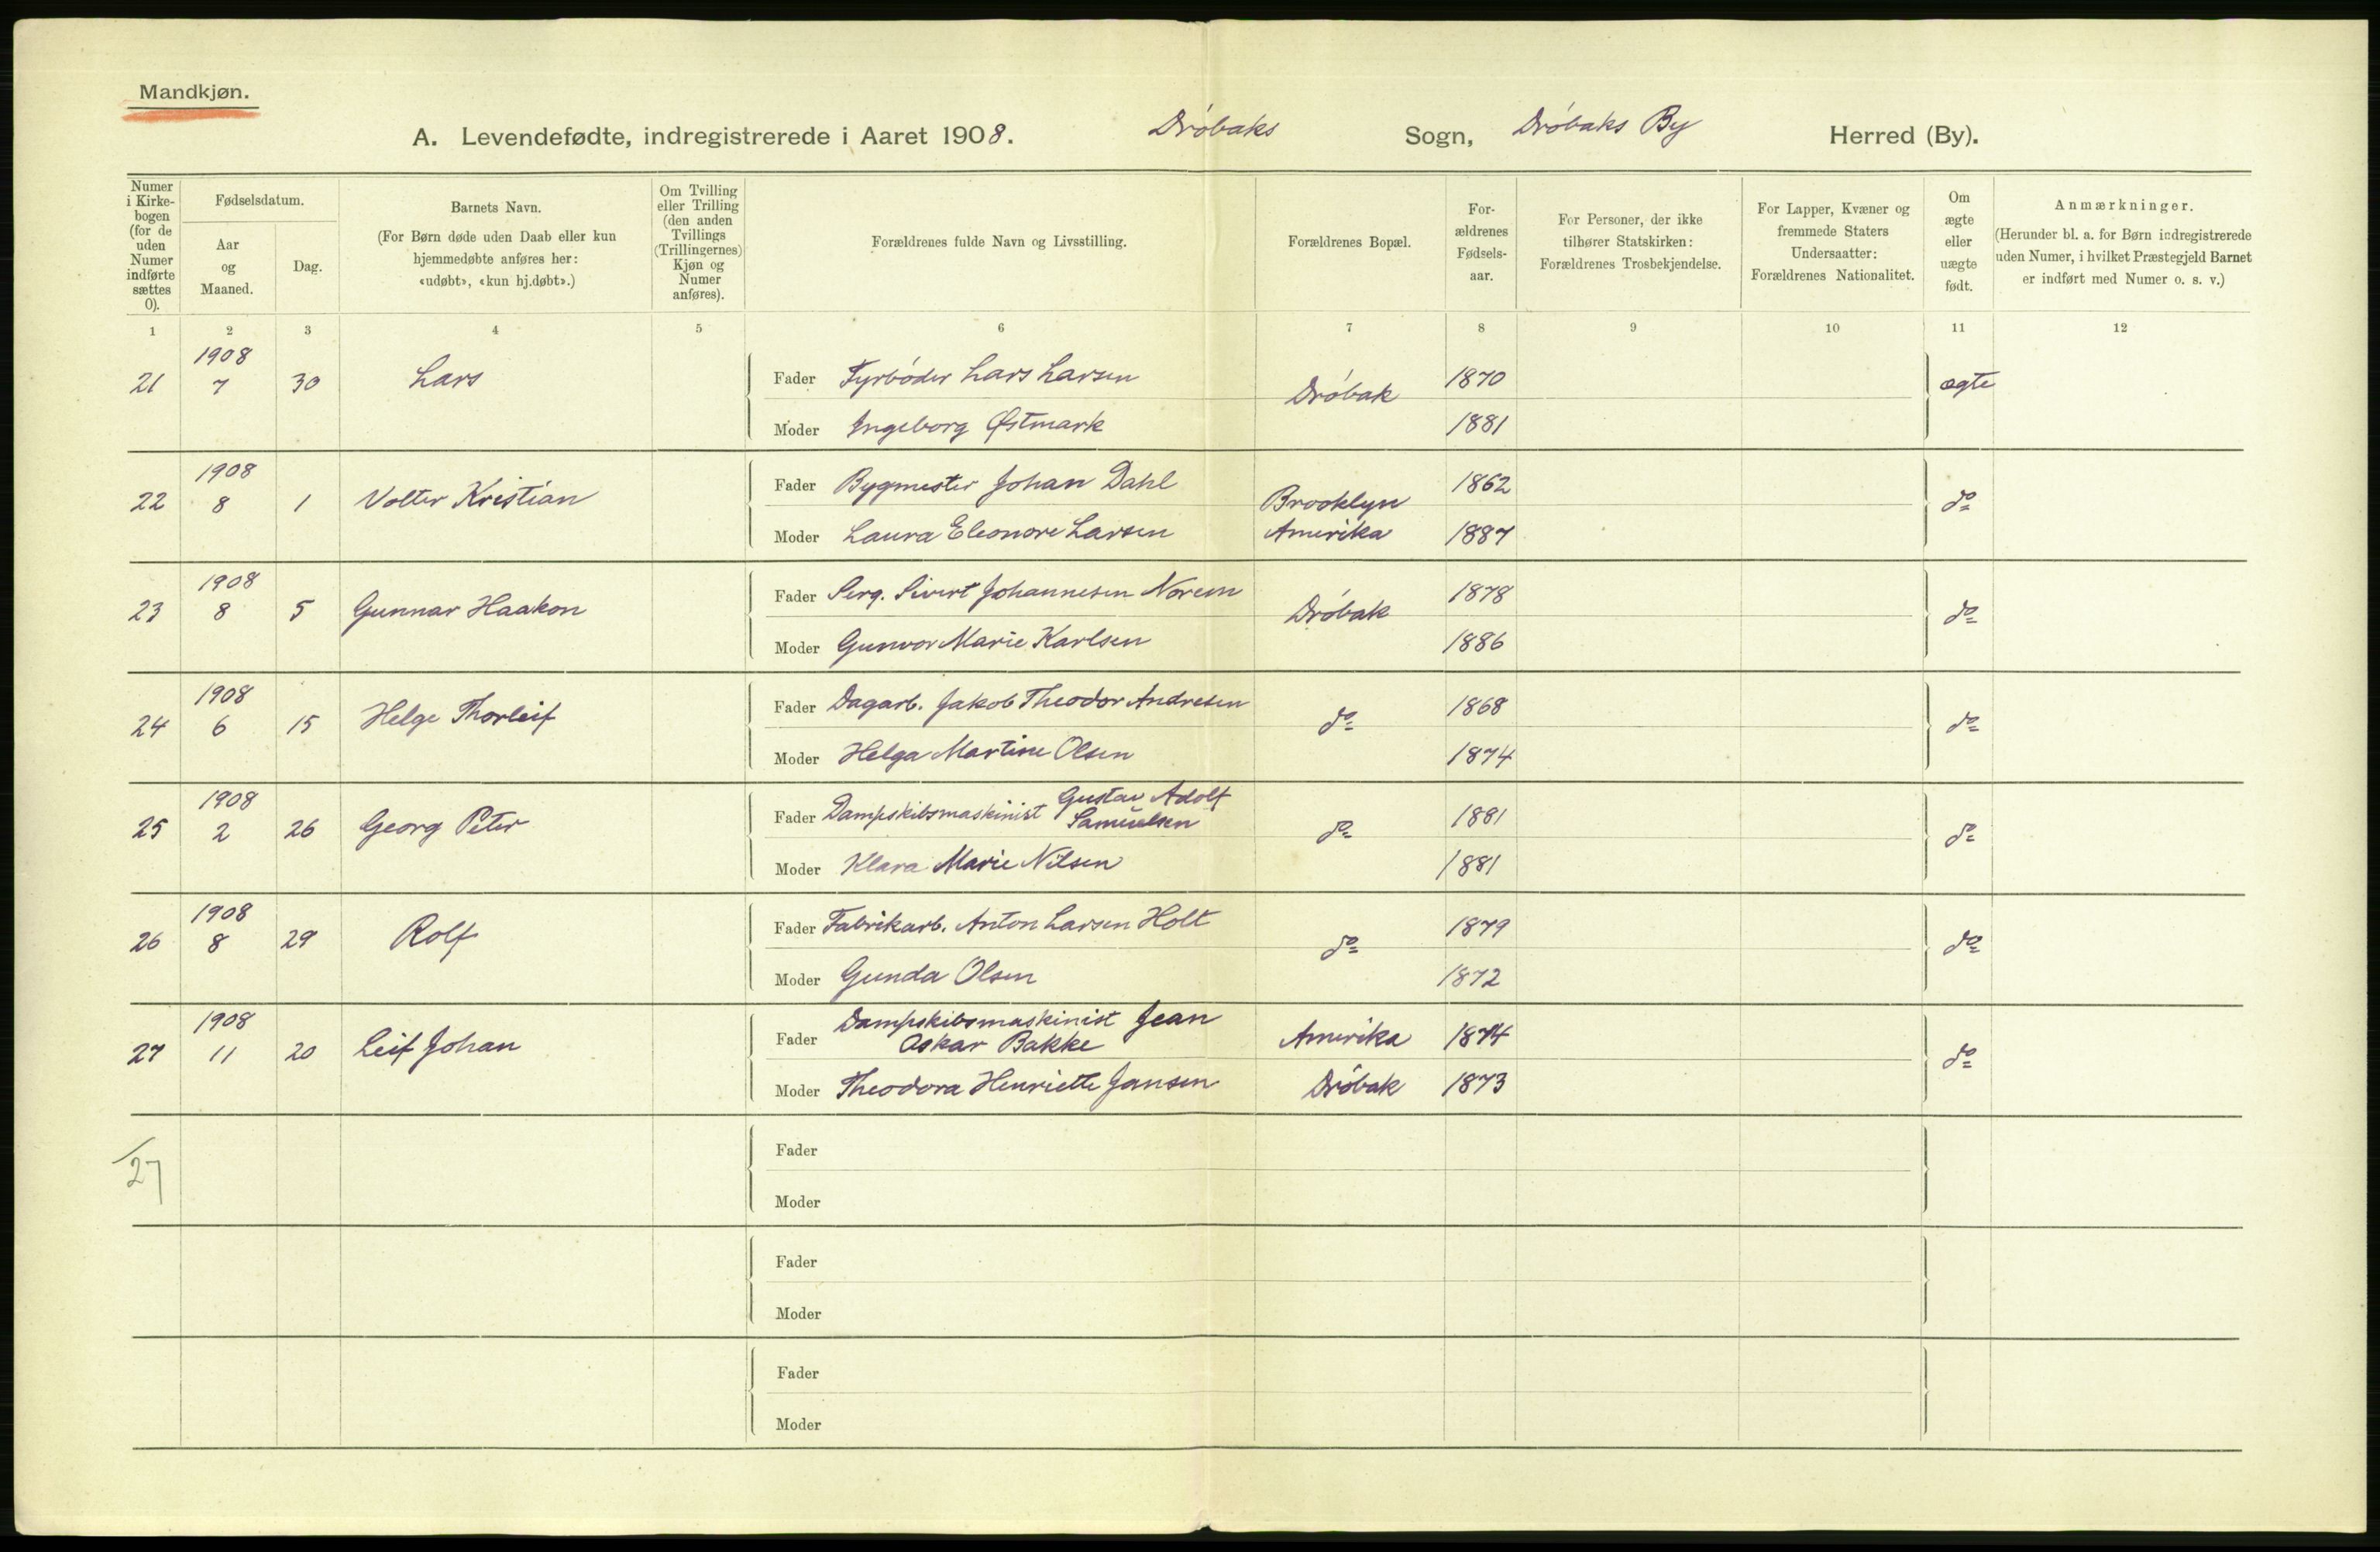 Mandkjøn.
A. Levendefødte, indregistrerede i Aaret 1908. Drøbaks Sogn, Drøbaks By Herred (By).
Numer i Kirkebogen (for de uden Numer indførte sættes 0).
Fødselsdatum.
Aar og Maaned.
Dag.
Barnets Navn.
(For Børn døde uden Daab eller kun hjemmedøbte anføres her: «udøbt», «kun hj.døbt».)
Om Tvilling eller Trilling (den anden Tvillings (Trillingernes) Kjøn og Numer anføres).
Forældrenes fulde Navn og Livsstilling.
Forældrenes Bopæl.
Forældrenes Fødselsaar.
For Personer, der ikke tilhører Statskirken: Forældrenes Trosbekjendelse.
For Lapper, Kvæner og fremmede Staters Undersaatter: Forældrenes Nationalitet.
Om ægte eller uægte født.
Anmærkninger.
(Herunder bl. a. for Børn indregistrerede uden Numer, i hvilket Præstegjeld Barnet er indført med Numer o. s. v.)
1 2 3 4 5 6 7 8 9 10 11 12
1908
21 7 30 Lars Fader Fyrbøder Lars Larsen Drøbak 1870 ægte
Moder Ingeborg Østmark 1881
1908
22 8 1 Volter Kristian Fader Bygmester Johan Dahl Brooklyn 1862 do
Moder Laura Eleonore Larsen Amerika 1887
1908
23 8 5 Gunnar Haakon Fader Serg. Sivert Johannesen Norem Drøbak 1878 do
Moder Gunvor Marie Karlsen 1886
1908
24 6 15 Helge Thorleif Fader Dagarb. Jakob Theodor Andresen do 1868 do
Moder Helga Martine Olsen 1874
1908
25 2 26 Georg Peter Fader Dampskibsmaskinist Gustav Adolf Samuelsen do 1881 do
Moder Klara Marie Nilsen 1881
1908
26 8 29 Rolf Fader Fabrikarb. Anton Larsen Holt do 1879 do
Moder Gunda Olsen 1872
1908
27 11 20 Leif Johan Fader Dampskibsmaskinist Jean Oskar Bakke Amerika 1874 do
Moder Theodora Henriette Jansen Drøbak 1873
27
Fader
Moder
Fader
Moder
Fader
Moder